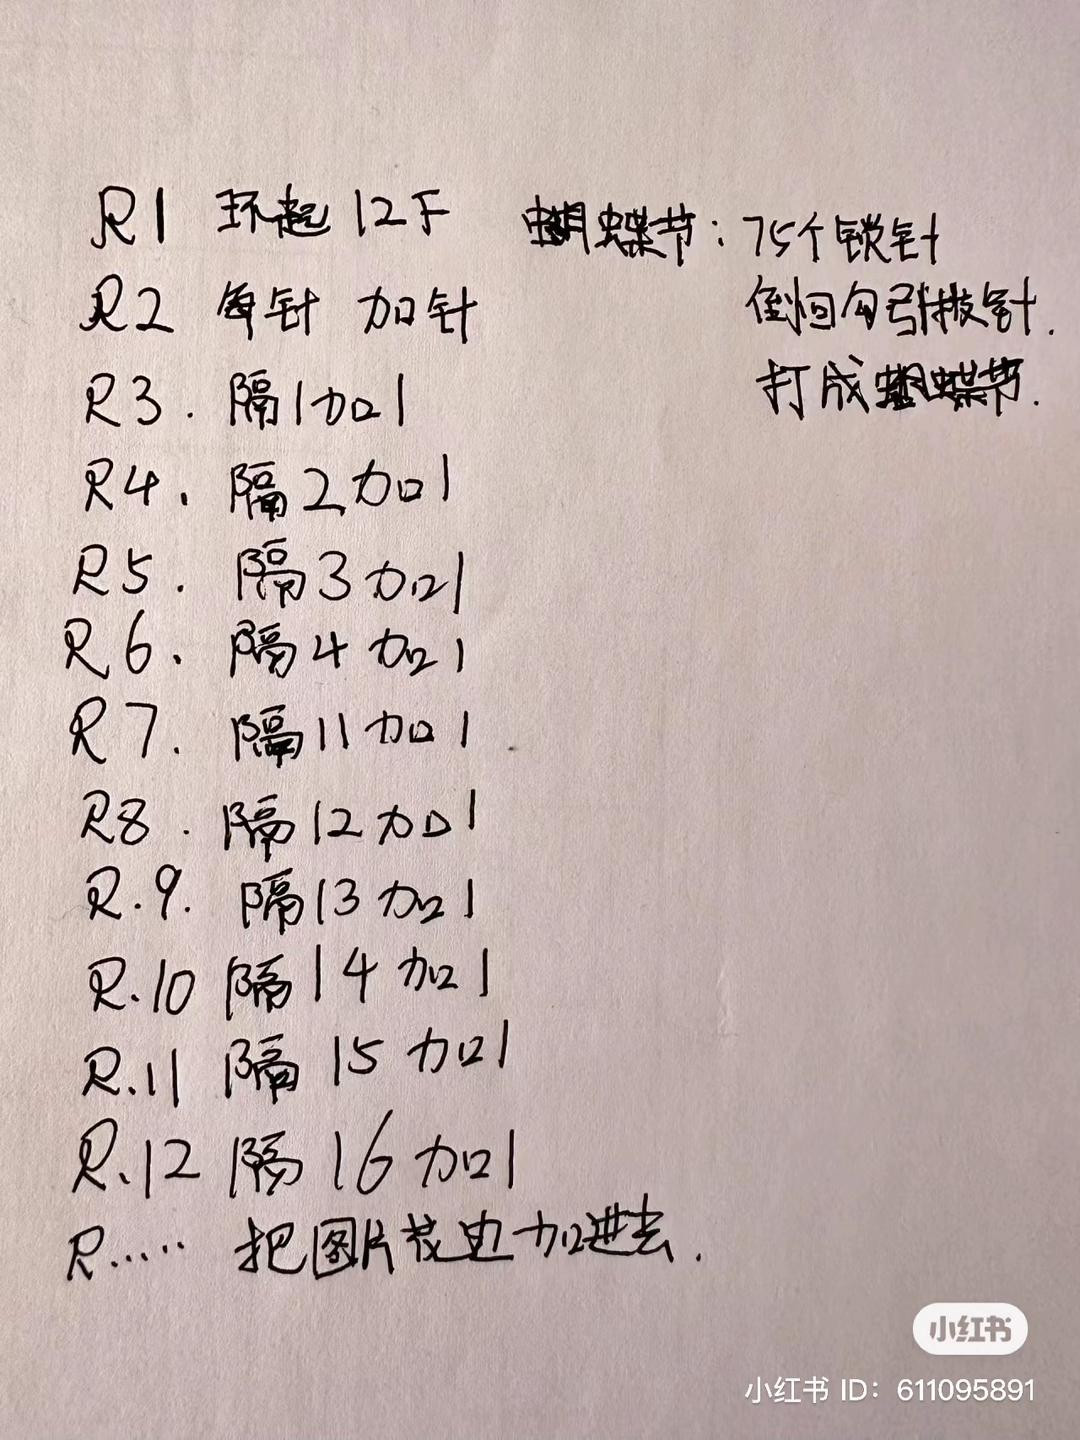 R1 环起12F
R2 每针 加针
R3. 隔1加1
R4. 隔2加1
R5. 隔3加1
R6. 隔4加1
R7. 隔11加1
R8. 隔12加1
R.9. 隔13加1
R.10 隔14加1
R.11 隔15加1
R.12 隔16加1
R..... 把图片花边加进去.
蝴蝶节:75个锁针
倒回勾引拔针.
打成蝴蝶节.
小红书
小红书 ID:611095891